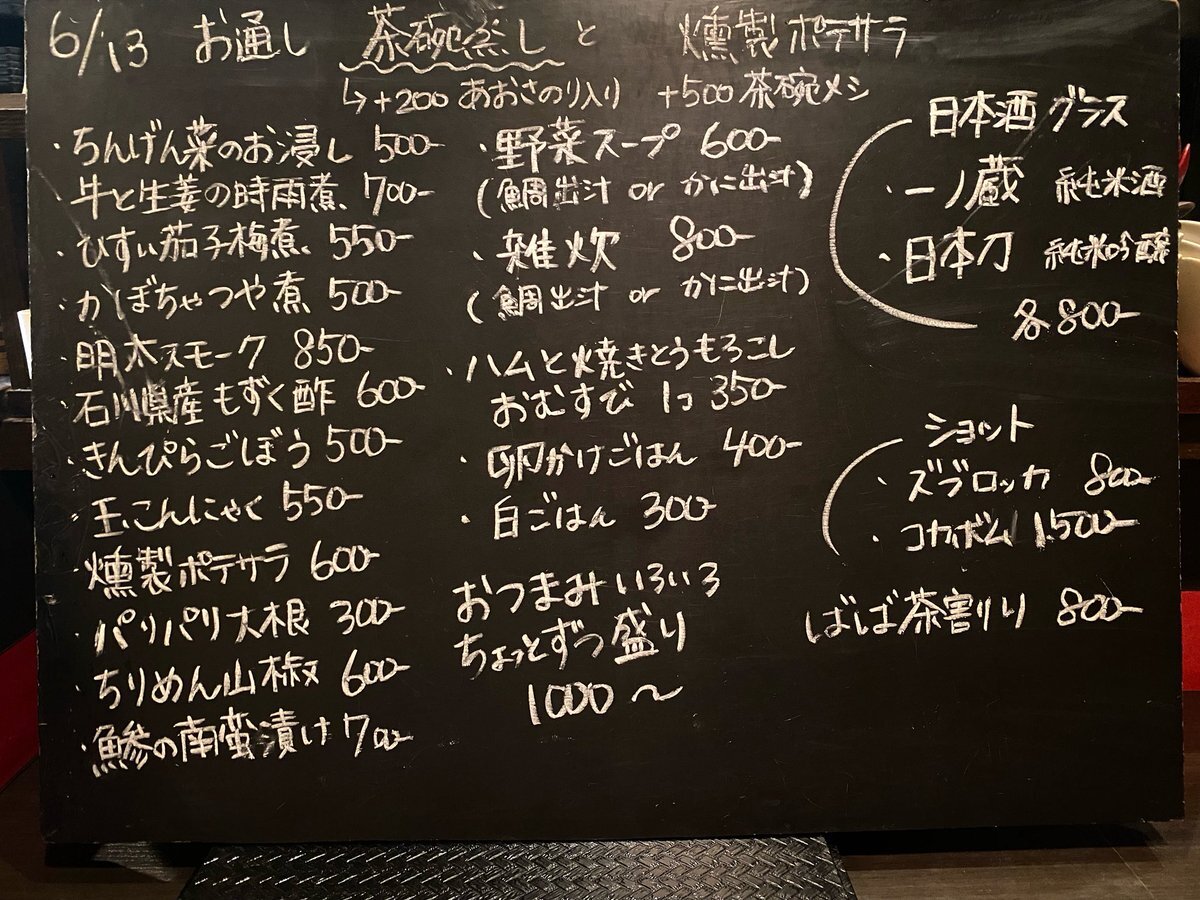 6/13 お通し 茶碗蒸しと 燻製ポテサラ
↳+200 あおさのり入り +500 茶碗メシ
・ちんげん菜のお浸し 500-
・牛と生姜の時雨煮 700-
・ひすい茄子梅煮 550-
・かぼちゃつや煮 500-
・明太スモーク 850-
・石川県産もずく酢 600-
・きんぴらごぼう 500-
・玉こんにゃく 550-
・燻製ポテサラ 600-
・パリパリ大根 300-
・ちりめん山椒 600-
・鯵の南蛮漬け 700-
・野菜スープ 600-
(鯛出汁 or かに出汁)
・雑炊 800-
(鯛出汁 or かに出汁)
・ハムと焼きとうもろこし
おむすび 1コ 350-
・卵かけごはん 400-
・白ごはん 300-
おつまみいろいろ
ちょっとずつ盛り
1000〜
日本酒グラス
・一ノ蔵 純米酒
・日本刀 純米吟醸
各800-
ショット
・ズブロッカ 800-
・コカボム 1.500-
ばば茶割り 800-